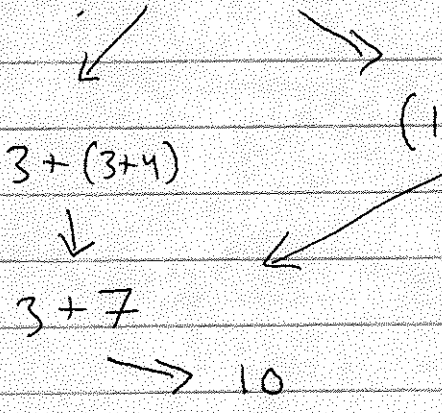 (1
3 + (3+4)
3 + 7
10